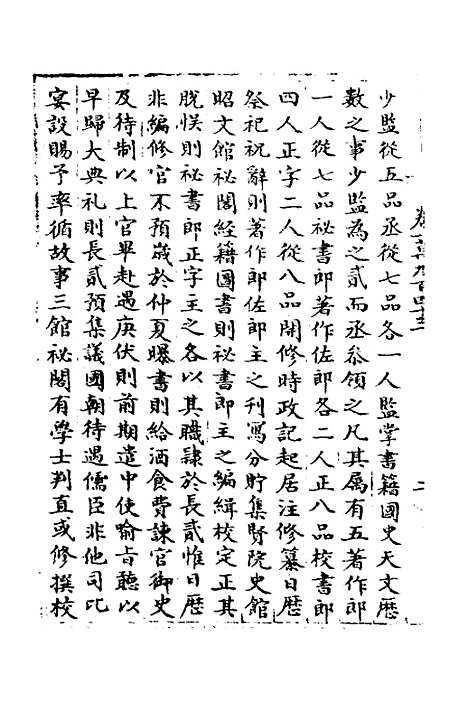 少監從五品丞從七品各一人監掌書籍國史天文曆
數之事少監為之貳而丞叅領之凡其屬有五著作郎
一人從七品祕書郎著作佐郎各二人正八品校書郎
四人正字二人從八品開修時政記起居注修纂日曆
祭祀祝辭則著作郎佐郎主之刊寫分貯集賢院史館
昭文館祕閣經籍圖書則祕書郎主之編緝校定正其
脫悮則祕書郎正字主之各以其職隸於長貳惟日曆
非編修官不預歲於仲夏曝書則給酒食費諫官御史
及待制以上官畢赴遇庚伏則前期遣中使喻旨聽以
早歸大典禮則長貳預集議國朝待遇儒臣非他司比
宴設賜予率循故事三館祕閣有學士判直或修撰校